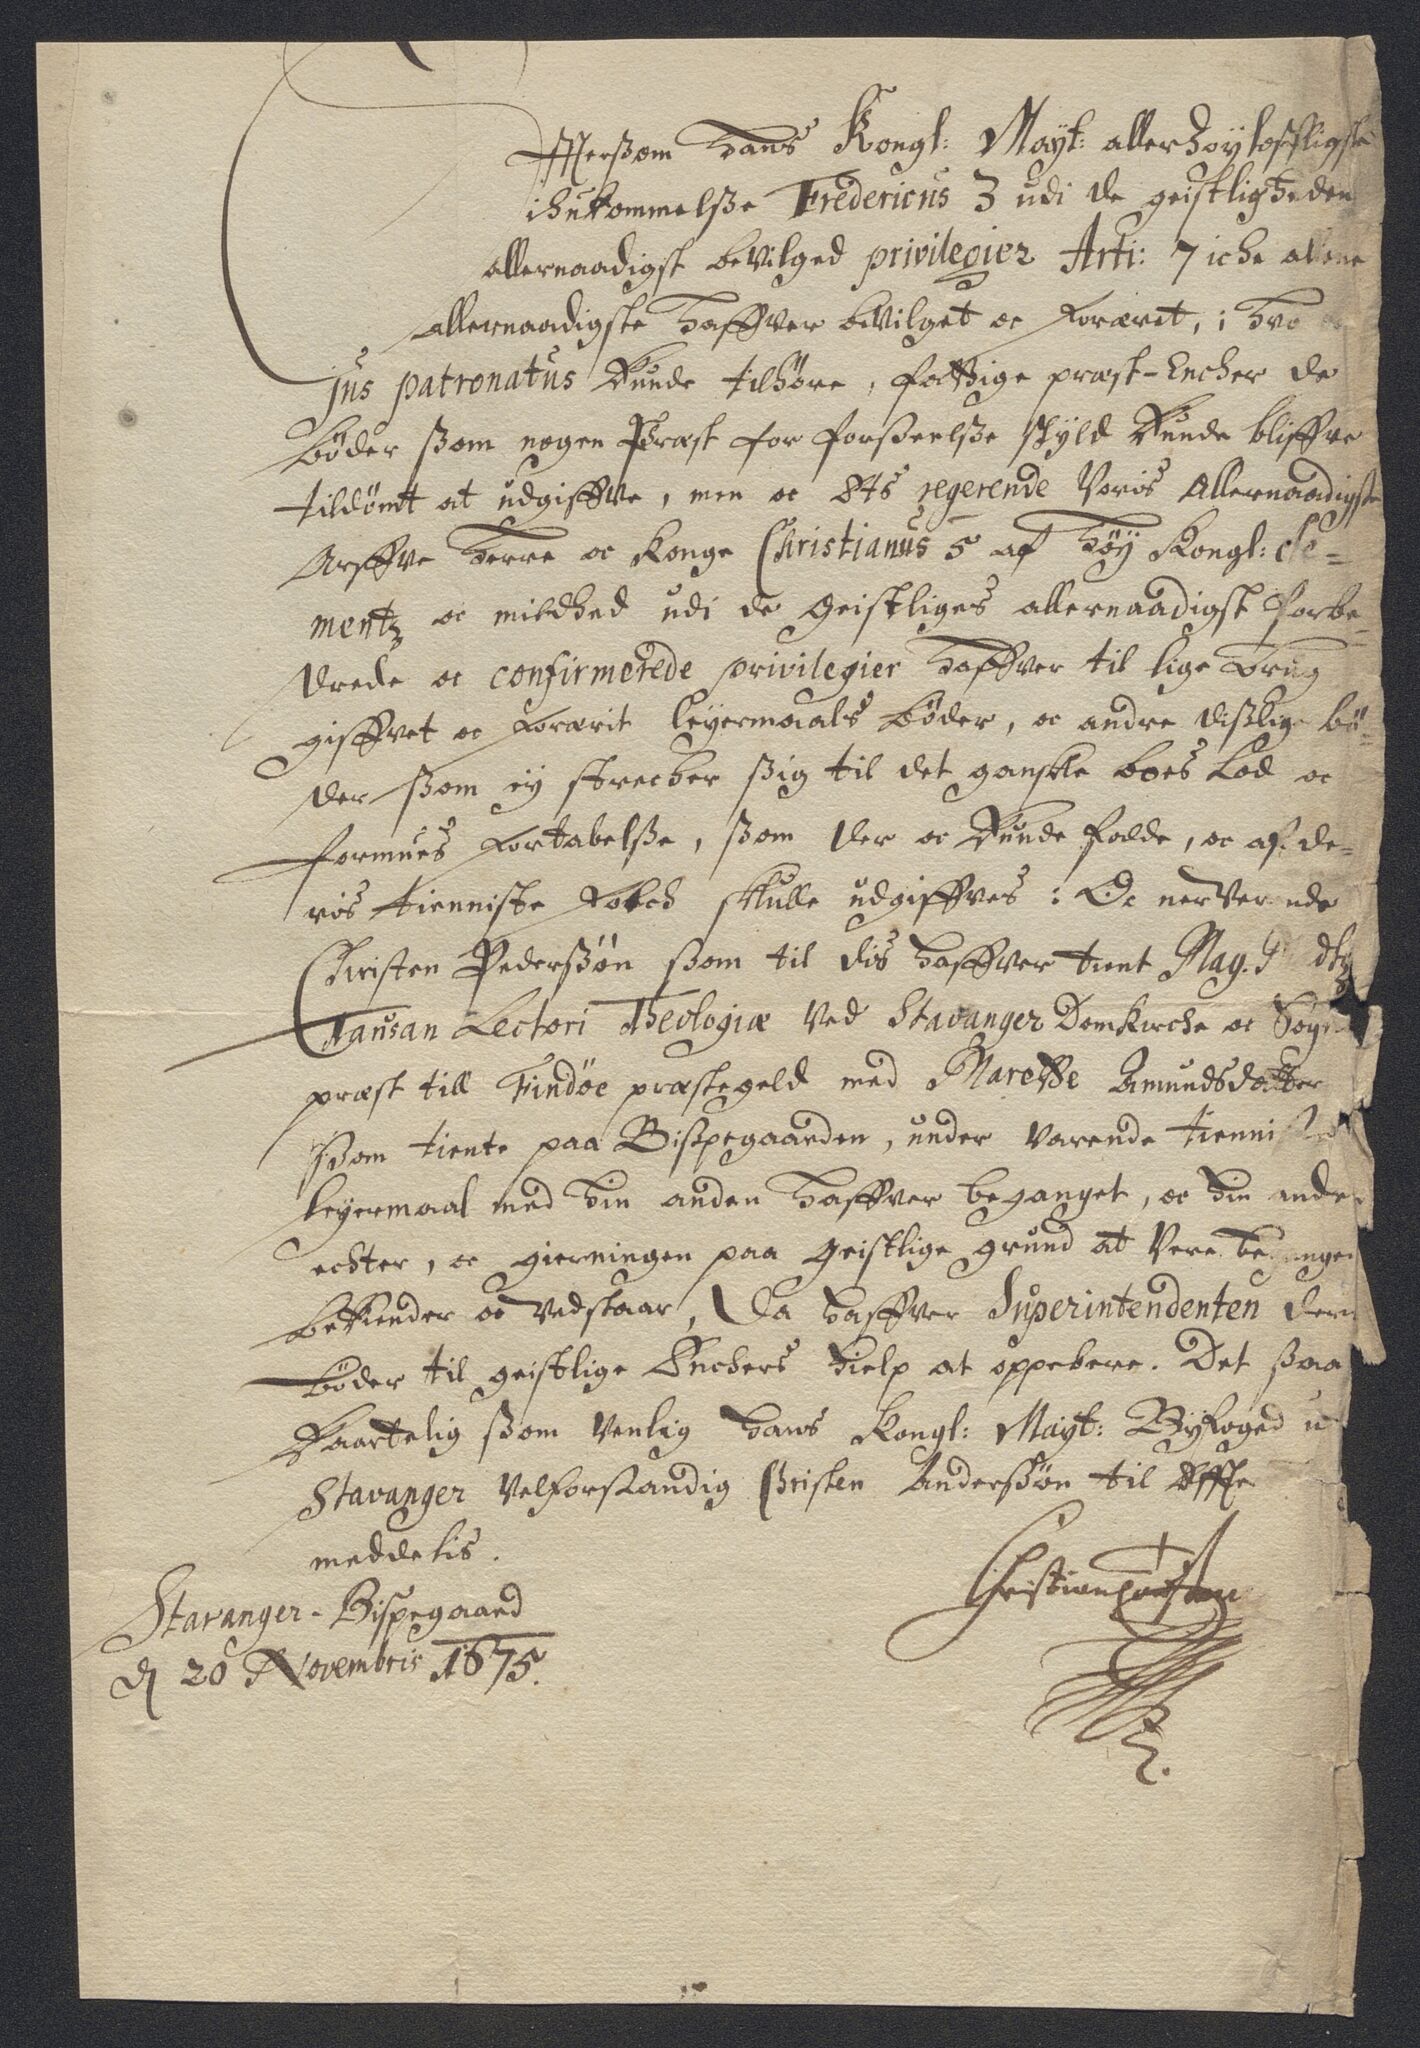 Efftersom Hans Kongl: Mayt: allerhøylofligste
ihukommelsse Fredericus 3 udi de geistligheden
allernaadigst bevilged privilegier Arti: 7 iche allene
allernaadigste haffver bevilget oc foræret, i hvo
jus patronatus kunde tilhøre, fattige præst-Encher de
bøder ssom nogen Præst for forsseelsse skyld kunde bliffve
tildømt at udgiffve, men oc regerende Voris Allernaadigste
Arffve Herre oc Konge Christianus 5 af høy Kongl: cle=
mentz oc mildhed udi de Geistliges allernaadigst forbe=
drede oc confirmerede privilegier haffver til lige brug
giffvet oc forærit leyermaals bøder, oc andre dißlige bö=
der ssom ey strecker ssig til det gandske boes Lod oc
formues fortabelsse, ssom der oc kunde falde, oc af de=
ris tienniste folch skulle udgiffves: Oc nerverende
Christen Pederssøn ssom til dis haffver tient Mag.
Tausan Lectori Theologiæ ved Stavanger Domkirche oc Sogne
præst till Findöe præstegeld med Marette Amundsdatter
ssom tiente paa Bißpegaarden, under varende tienniste
leyermaal med hin anden haffver beganget, oc hin anden
echter, oc gierningen paa Geistlige grund at vere begangen
bekiender oc vedstaar, Da haffver Superintendenten
bøder til geistlige Enchers hielp at oppebere. Det ssaa
kaartelig ssom venlig Hans Kongl: Mayt: Byfoged u
Stavanger Velforstandig Christen Anderssøn til
meddelis.
Stavanger-Bispegaard
d 20 Novembris 1675.
Christian